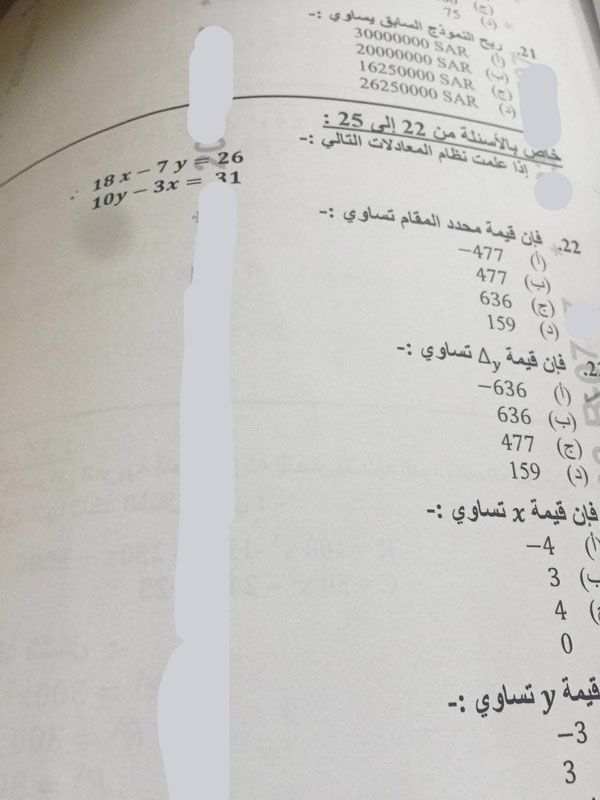 (ج)
(د) 75
21. ربح النموذج السابق يساوي :-
(أ) 30000000 SAR
(ب) 20000000 SAR
(ج) 16250000 SAR
(د) 26250000 SAR
خاص بالأسئلة من 22 إلى 25 :
إذا علمت نظام المعادلات التالي :-
18x − 7y = 26
10y − 3x = 31
22. فإن قيمة محدد المقام تساوي :-
(أ) −477
(ب) 477
(ج) 636
(د) 159
فإن قيمة Δy تساوي :-
(أ) −636
(ب) 636
(ج) 477
(د) 159
فإن قيمة x تساوي :-
−4
3
4
0
قيمة y تساوي :-
−3
3